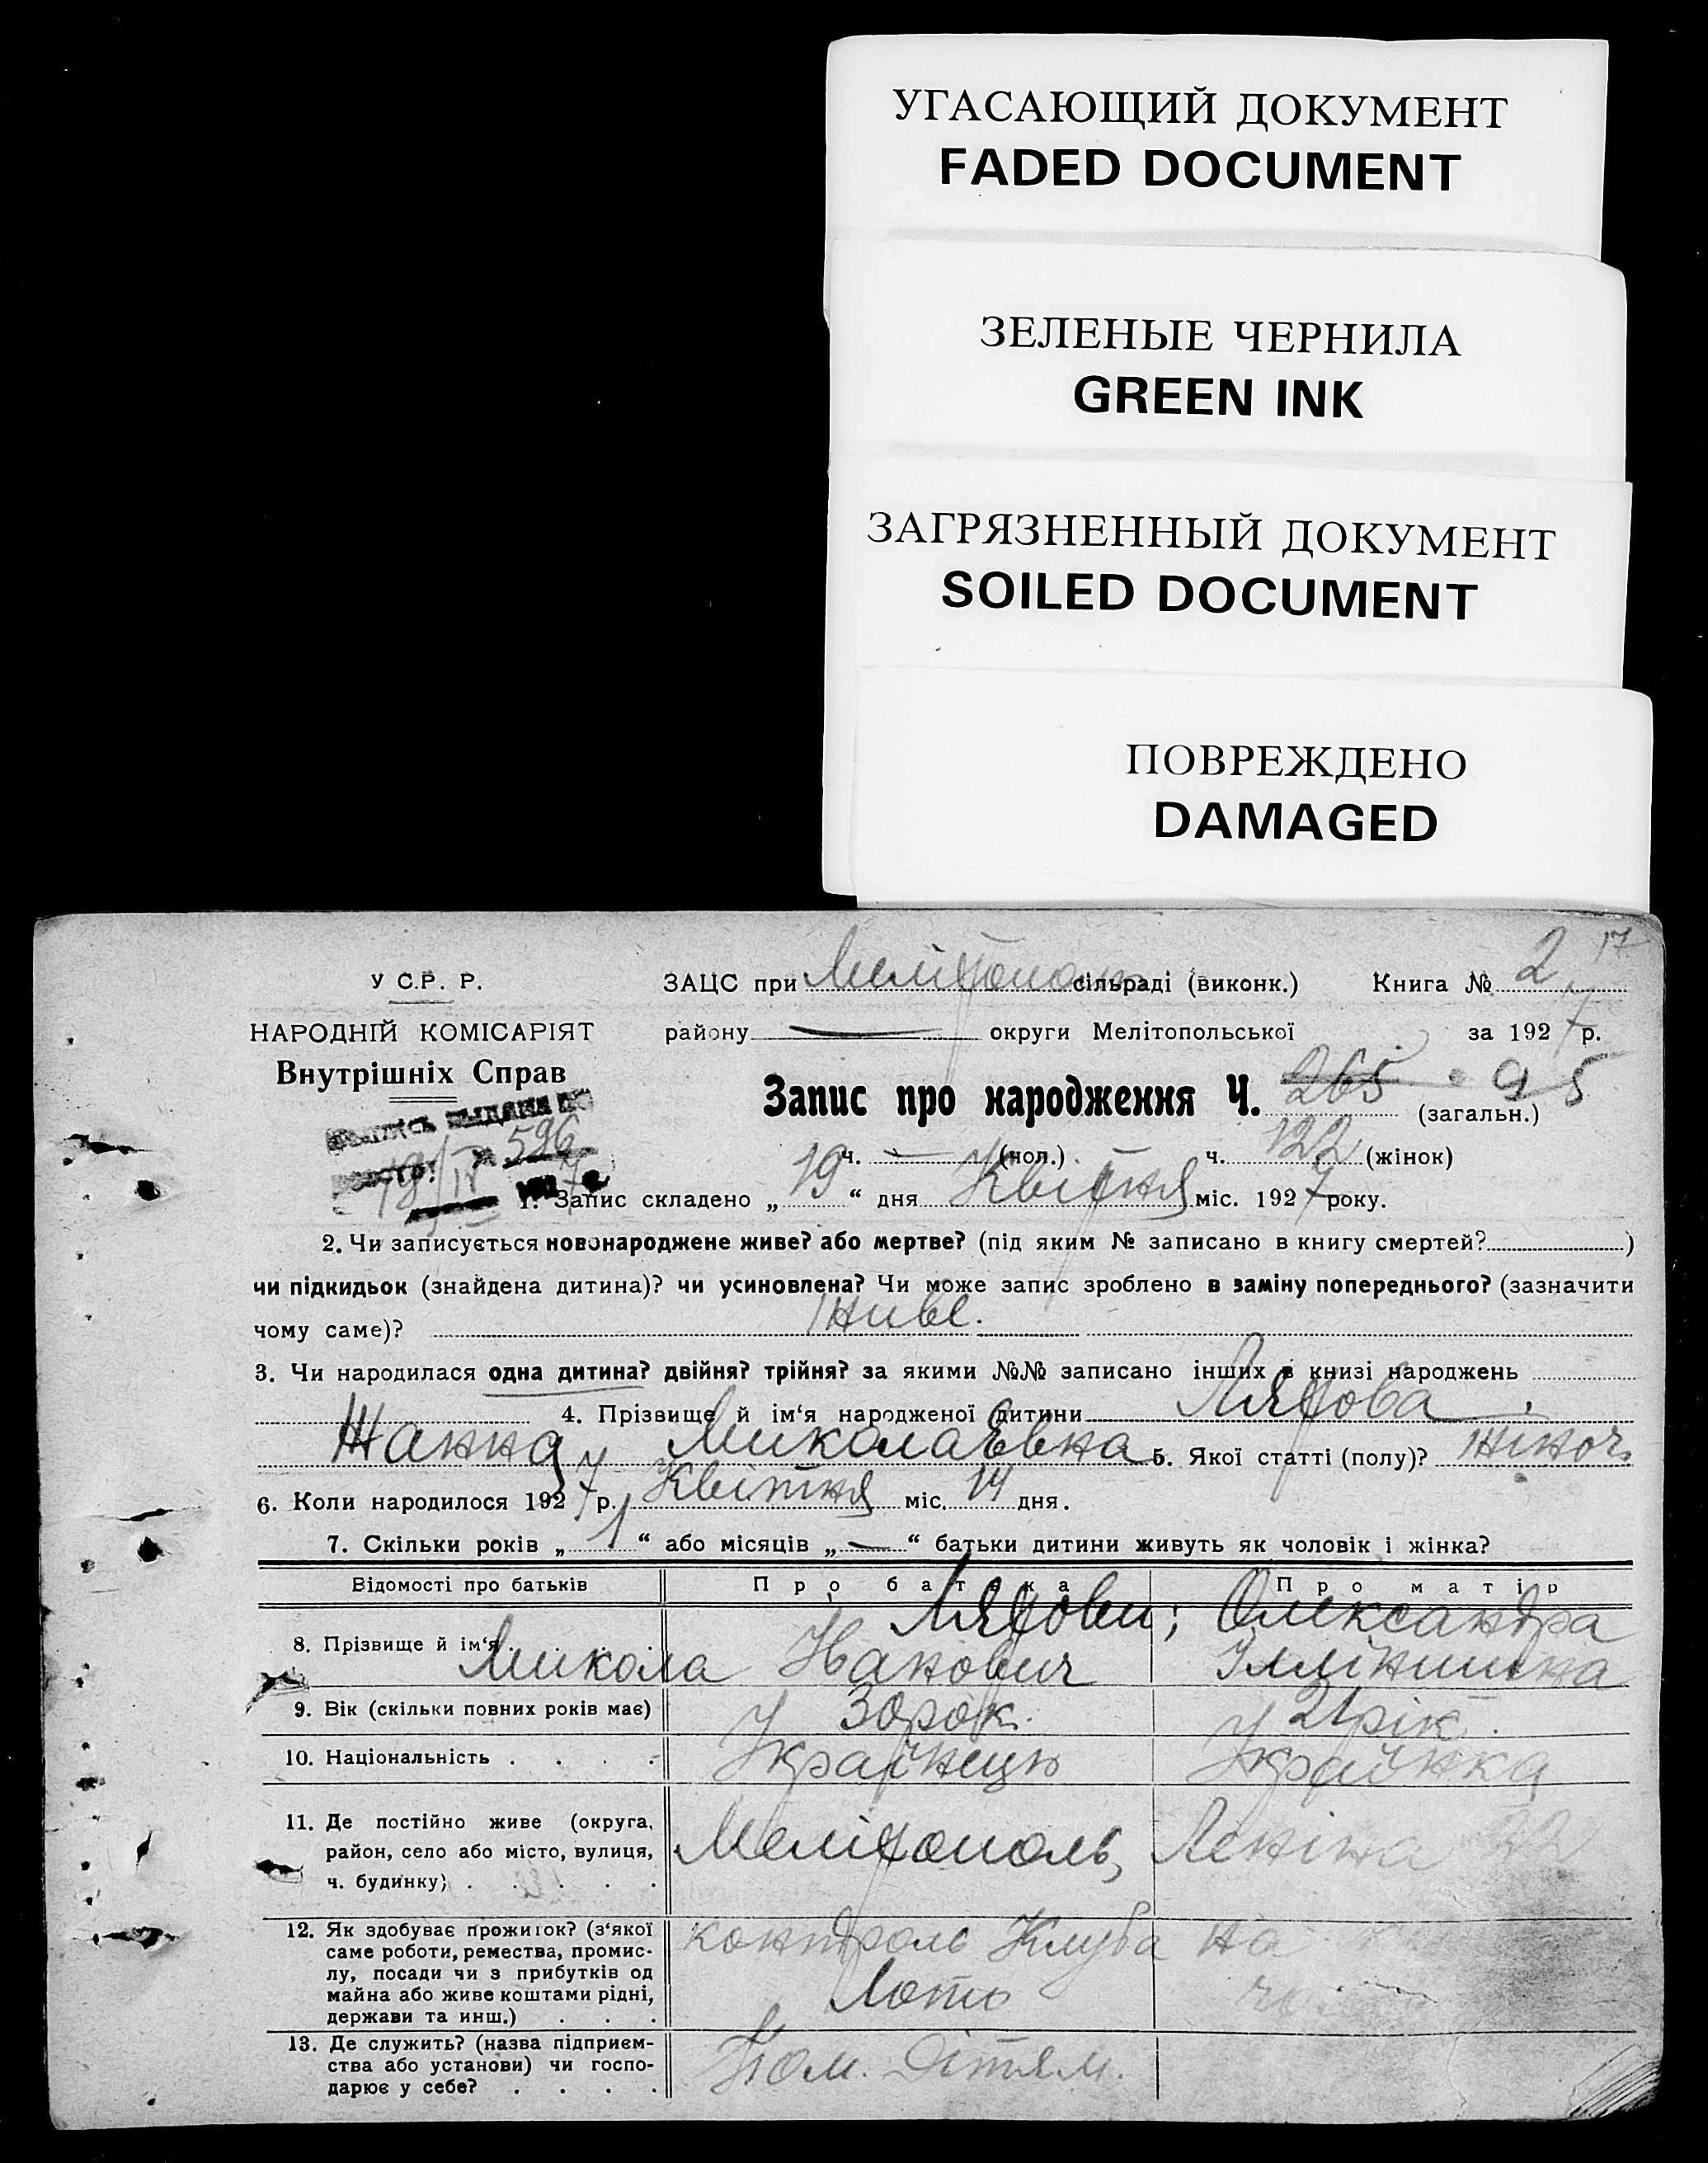 УГАСАЮЩИЙ ДОКУМЕНТ
FADED DOCUMENT
ЗЕЛЕНЫЕ ЧЕРНИЛА
GREEN INK
ЗАГРЯЗНЕННЫЙ ДОКУМЕНТ
SOILED DOCUMENT
ПОВРЕЖДЕНО
DAMAGED
17
У С.Р. Р. ЗАЦС при сільраді (виконк.) Книга № 2
НАРОДНІЙ КОМІСАРІЯТ району — округи Мелітопольської за 1927 р.
Внутрішніх Справ
Запис про народження Ч. 265 95 (загальн.)
596
ч. — (пол.) ч. 122 (жінок)
18/IV 7
1. Запис складено „ 19 “ дня Квітня міс. 1927 року.
2. Чи записується новонароджене живе? або мертве? (під яким № записано в книгу смертей? )
чи підкидьок (знайдена дитина)? чи усиновлена? Чи може запис зроблено в заміну попереднього? (зазначити
чому саме)? Живе.
3. Чи народилася одна дитина? двійня? трійня? за якими №№ записано інших в книзі народжень
4. Прізвище й ім‘я народженої дитини
Жанна Миколаєвна 5. Якої статті (полу)? жіноч.
6. Коли народилося 1927 р. Квітня міс. 14 дня.
7. Скільки років „ 1 “ або місяців „ — “ батьки дитини живуть як чоловік і жінка?
Відомості про батьків Про батька Про матір
8. Прізвище й ім‘я Олександра
Микола Іванович
9. Вік (скільки повних років має) 30 рок. 21 рік.
10. Національність Українець Українка
11. Де постійно живе (округа,
район, село або місто, вулиця,
ч. будинку) Мелітополь, Леніна
12. Як здобуває прожиток? (з‘якої
саме роботи, ремества, промис-
лу, посади чи з прибутків од
майна або живе коштами рідні,
держави та инш.) контроль Клуба на
Лото
13. Де служить? (назва підприєм-
ства або установи) чи госпо-
дарює у себе? Пом. дітям.